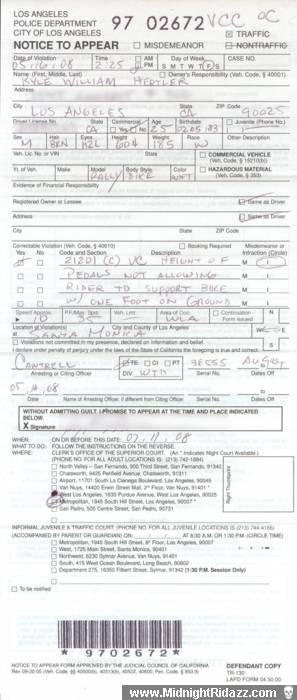 LOS ANGELES
POLICE DEPARTMENT
CITY OF LOS ANGELES
97 02672 VCC OC
NOTICE TO APPEAR
MISDEMEANOR
TRAFFIC
NONTRAFFIC
Date of Violation
Time
AM
PM
Day of Week
S M T W T F S
CASE NO.
05/16/08
2:25
Name (First, Middle, Last)
Owner's Responsibility (Veh. Code, § 40001)
KYLE WILLIAM
Address
City
State
ZIP Code
LOS ANGELES CA 90025
Driver License No.
State
Commercial
Yes No
Age
Birthdate
Juvenile (Phone No.)
CA 25 02 05 83
Sex
Hair
Eyes
Height
Weight
Race
Other Description
M BRN HZL 604 185 W
Veh. Lic. No. or VIN
State
COMMERCIAL VEHICLE
(Veh. Code, § 15210(b))
Yr. of Veh.
Make
Model
Body Style
Color
HAZARDOUS MATERIAL
(Veh. Code, § 353)
BIKE
Evidence of Financial Responsibility
Registered Owner or Lessee
Same as Driver
Address
Same as Driver
City
State
ZIP Code
Correctable Violation (Veh. Code, § 40610)
Booking Required
Misdemeanor or
Infraction (Circle)
Yes No
Code and Section
Description
21201 (C) VC HEIGHT OF
PEDALS NOT ALLOWING
RIDER TO SUPPORT BIKE
W/ ONE FOOT ON GROUND
Speed Approx.
P.F./Max Spd.
Veh. Lmt.
Area of Occ.
Continuation
Form Issued
10 35 WLA
Location of Violation(s)
City and County of Los Angeles
SANTA MONICA
Violations not committed in my presence, declared on information and belief.
I declare under penalty of perjury under the laws of the State of California the foregoing is true and correct.
CANTRELL
Arresting or Citing Officer
DIV WTD
Serial No.
Dates Off
05 16 08
Date
Name of Arresting Officer, if different from Citing Officer
Serial No.
Dates Off
WITHOUT ADMITTING GUILT, I PROMISE TO APPEAR AT THE TIME AND PLACE INDICATED
BELOW.
X Signature
WHEN: ON OR BEFORE THIS DATE: 07 11 08
WHAT TO DO: FOLLOW THE INSTRUCTIONS ON THE REVERSE.
WHERE: CLERK'S OFFICE OF THE SUPERIOR COURT. (An * Indicates Night Court Available.)
(PHONE NO. FOR ALL ADULT LOCATIONS IS: (213) 742-1884)
North Valley – San Fernando, 900 Third Street, San Fernando, 91340
Chatsworth, 9425 Penfield Avenue, Chatsworth, 91311
Airport, 11701 South La Cienega Boulevard, Los Angeles, 90045
Van Nuys, 14400 Erwin Street Mall, 2nd Floor, Van Nuys, 91401 *
West Los Angeles, 1633 Purdue Avenue, West Los Angeles, 90025
Metropolitan, 1945 South Hill Street, Los Angeles, 90007 *
San Pedro, 505 Centre Street, San Pedro, 90731
Right Thumbprint
INFORMAL JUVENILE & TRAFFIC COURT (PHONE NO. FOR ALL JUVENILE LOCATIONS IS: (213) 744-4155)
(ACCOMPANIED BY PARENT OR GUARDIAN) ON AT 8:30 A.M. OR 1:30 P.M. (CIRCLE TIME)
Metropolitan, 1945 South Hill Street, 8th Floor, Los Angeles, 90007
West, 1725 Main Street, Santa Monica, 90401
Northwest, 6230 Sylmar Avenue, Van Nuys, 91401
South, 415 West Ocean Boulevard, Long Beach, 90802
Department 275, 16350 Filbert Street, Sylmar, 91342 (1:30 P.M. Session Only)
To be notified
*9702672*
NOTICE TO APPEAR FORM APPROVED BY THE JUDICIAL COUNCIL OF CALIFORNIA
DEFENDANT COPY
TR-130
LAPD FORM 04.50.00
www.MidnightRidazz.com